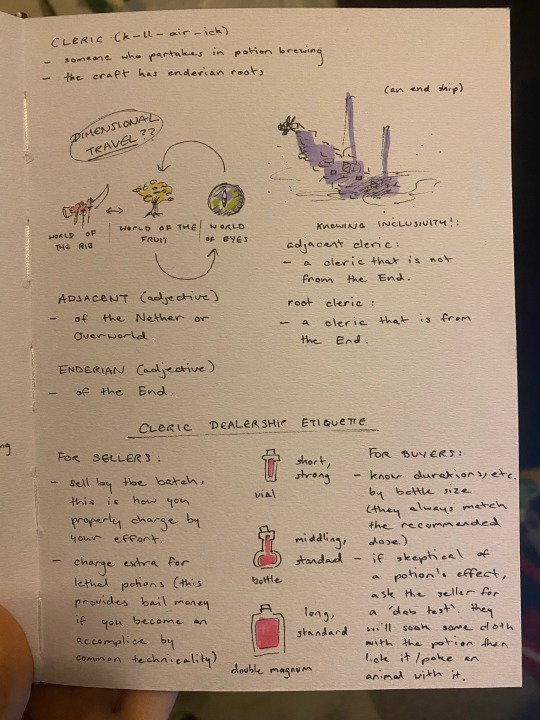 CLERIC (k-ll-air-ick)
- someone who partakes in potion brewing
- the craft has enderian roots
(an end ship)
DIMENSIONAL
TRAVEL??
WORLD OF
THE RIB
WORLD OF THE
FRUIT
WORLD
OF EYES
KNOWING INCLUSIVITY!:
adjacent cleric:
- a cleric that is not
from the End.
root cleric:
- a cleric that is from
the End.
ADJACENT (adjective)
- of the Nether or
Overworld.
ENDERIAN (adjective)
- of the End.
CLERIC DEALERSHIP ETIQUETTE
FOR SELLERS:
- sell by the batch,
this is how you
properly charge by
your effort.
- charge extra for
lethal potions (this
provides bail money
if you become an
accomplice by
common technicality)
short,
strong
vial
middling,
standard
bottle
long,
standard
double magnum
FOR BUYERS:
- know durations, etc.
by bottle size
(they always match
the recommended
dose)
- if skeptical of
a potion's effect,
ask the seller for
a 'dab test'. they
will soak some cloth
with the potion then
lick it/poke an
animal with it.